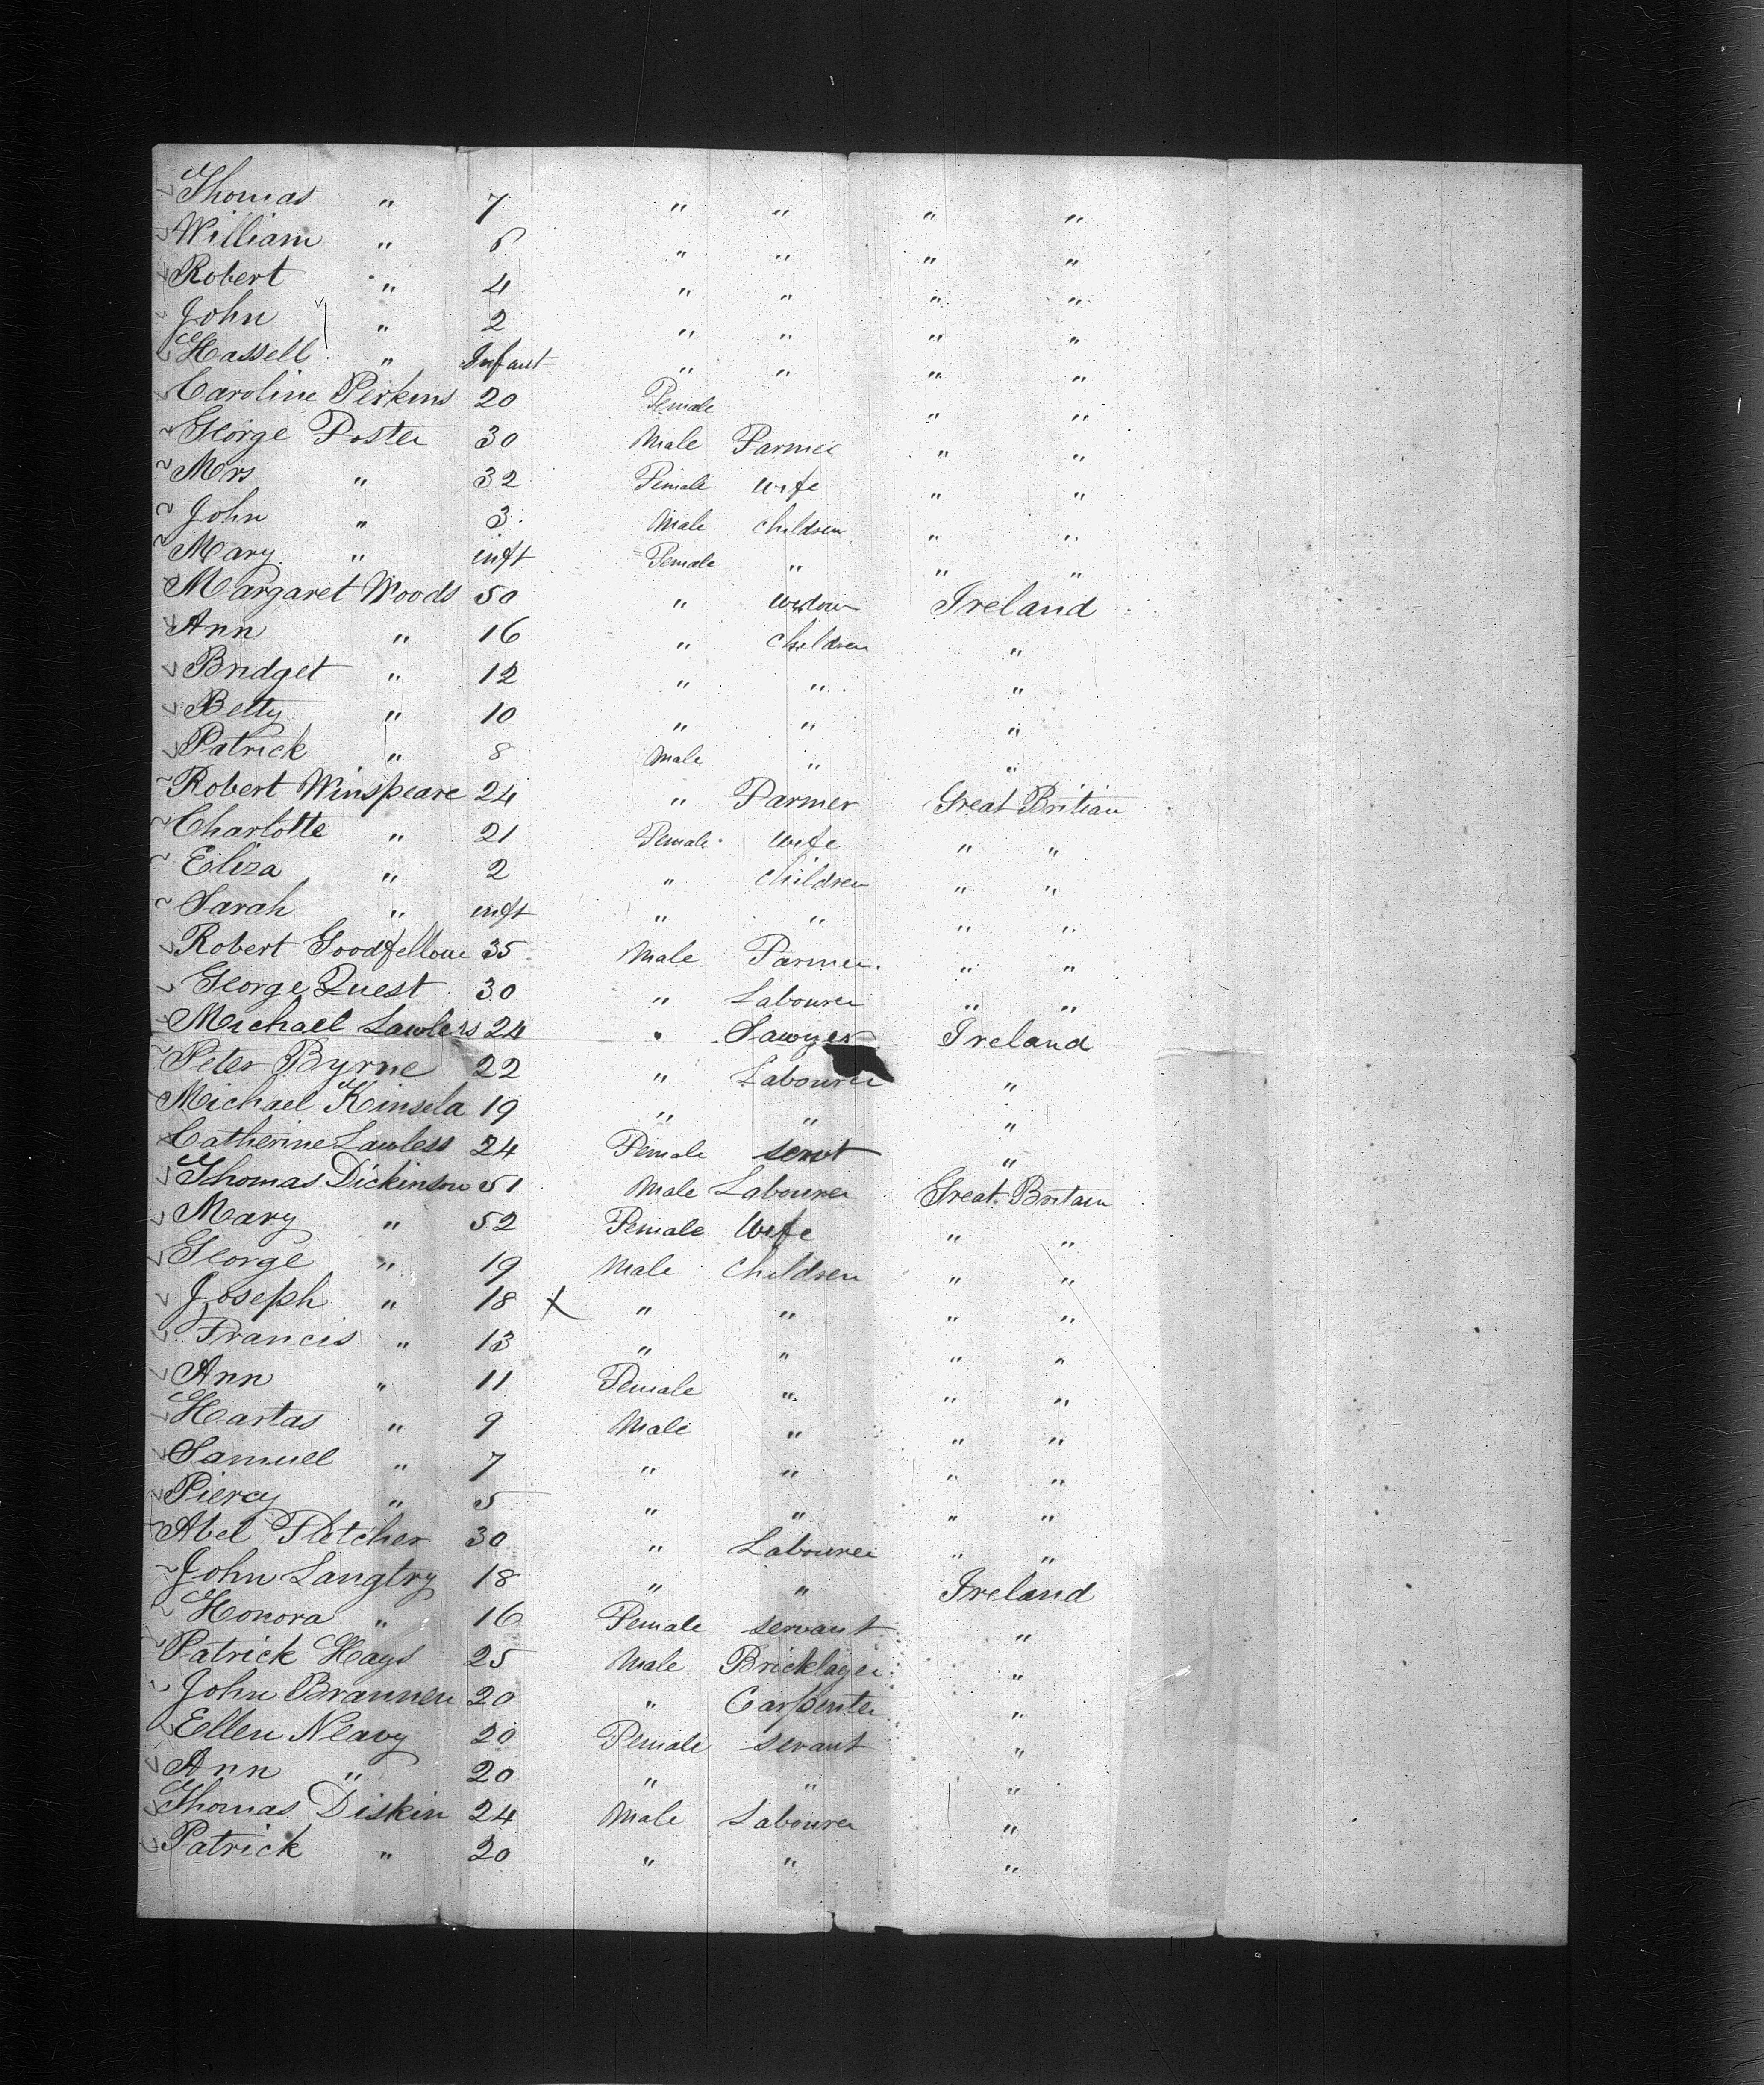 Thomas " 7 " " " "
William " 6 " " " "
Robert " 4 " " " "
John " 2 " " " "
Hassell " Infant " " " "
Caroline Perkins 20 Female " "
George Foster 30 Male Farmer " "
Mrs " 32 Female wife " "
John " 3 Male children " "
Mary " inft Female " " "
Margaret Woods 50 " widow Ireland
Ann " 16 " children "
Bridget " 12 " " "
Betty " 10 " " "
Patrick " 8 Male " "
Robert Winspeare 24 " Farmer Great Britian
Charlotte " 21 Female wife " "
Eliza " 2 " children " "
Sarah " inft " " " "
Robert Goodfellow 35 Male Farmer " "
George Quest 30 " Labourer " "
Michael Lawless 24 " Sawyer Ireland
Peter Byrne 22 " Labourer "
Michael Kinsela 19 " " "
Catherine Lawless 24 Female servt "
Thomas Dickinson 51 Male Labourer Great Britain
Mary " 52 Female Wife " "
George " 19 Male children " "
Joseph " 18 x " " " "
Francis " 13 " " " "
Ann " 11 Female " " "
Hartas " 9 Male " " "
Samuel " 7 " " " "
Piercy " 5 " " " "
Abel Fletcher 30 " Labourer " "
John Langtry 18 " " Ireland
Honora " 16 Female servant "
Patrick Hays 25 Male Bricklayer "
John Brannen 20 " Carpenter "
Ellen Neavy 20 Female servant "
Ann " 20 " " "
Thomas Diskin 24 Male Labourer "
Patrick " 20 " " "